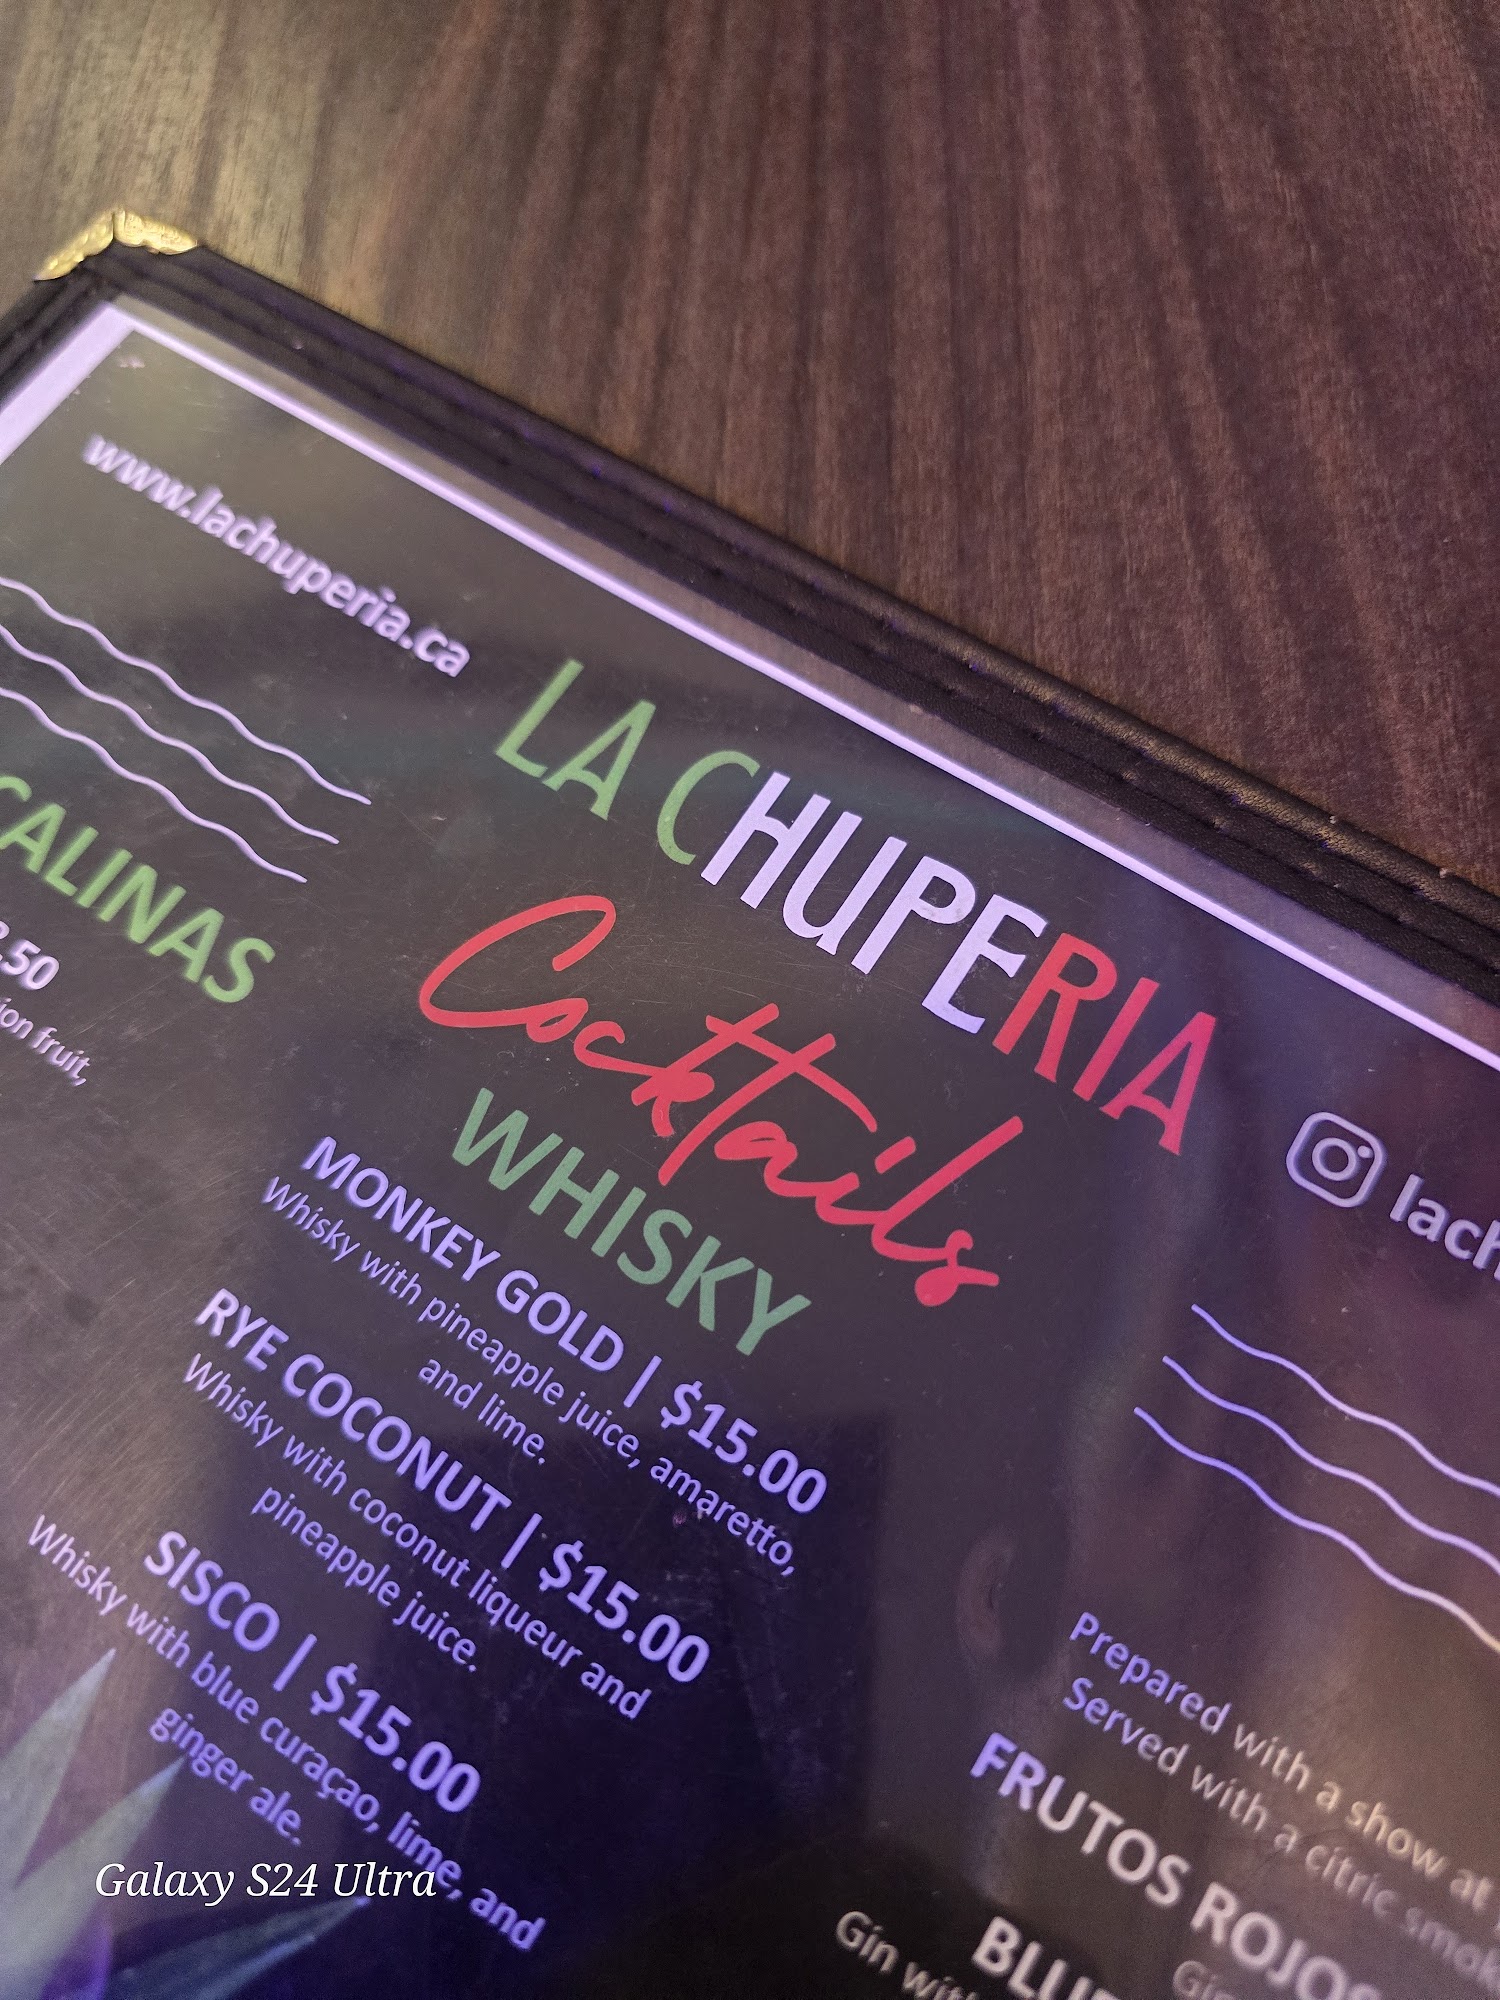 www.lachuperia.ca
CALINAS
.50
ion fruit,
LA CHUPERIA
Cocktails
WHISKY
MONKEY GOLD | $15.00
Whisky with pineapple juice, amaretto,
and lime.
RYE COCONUT | $15.00
Whisky with coconut liqueur and
pineapple juice.
SISCO | $15.00
Whisky with blue curaçao, lime, and
ginger ale.
lach
Prepared with a show at
Served with a citric smok
FRUTOS ROJOS
Gin with
Galaxy S24 Ultra